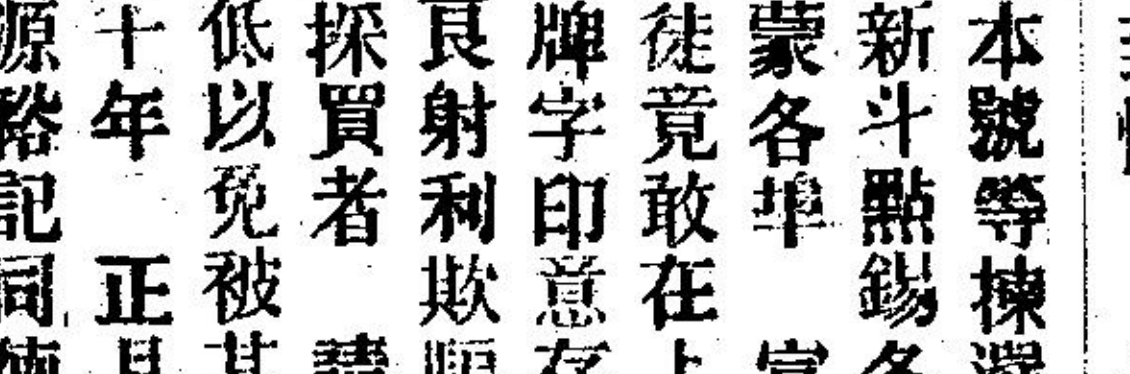 本號等揀選
新斗點錫各
蒙各埠 官
徒竟敢在上
牌字印意存
良射利欺
採買者 請
低以免被其
十年 正月
源裕記同